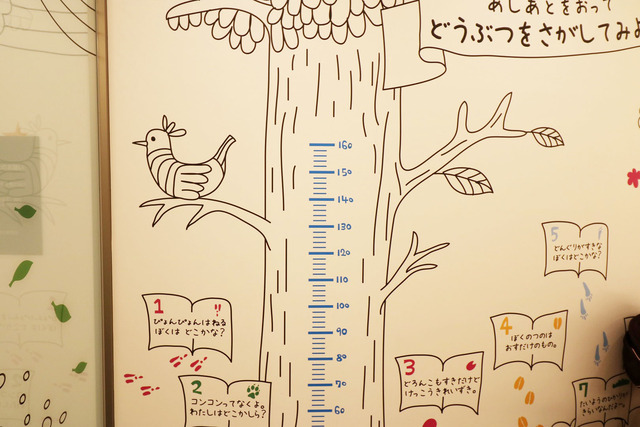 あしあとをおって
どうぶつをさがしてみよ
160
150
140
130
120
110
100
90
80
70
60
1
ぴょんぴょんはねる
ぼくは どこかな?
2
コンコンってなくよ。
わたしはどこかしら?
3
どろんこもすきだけど
けっこうきれいずき。
4
ぼくのつのは
おすだけのもの。
5
どんぐりがすきな
ぼくはどこかな?
7
たいようのひかりが
きらいなんだよ〜。